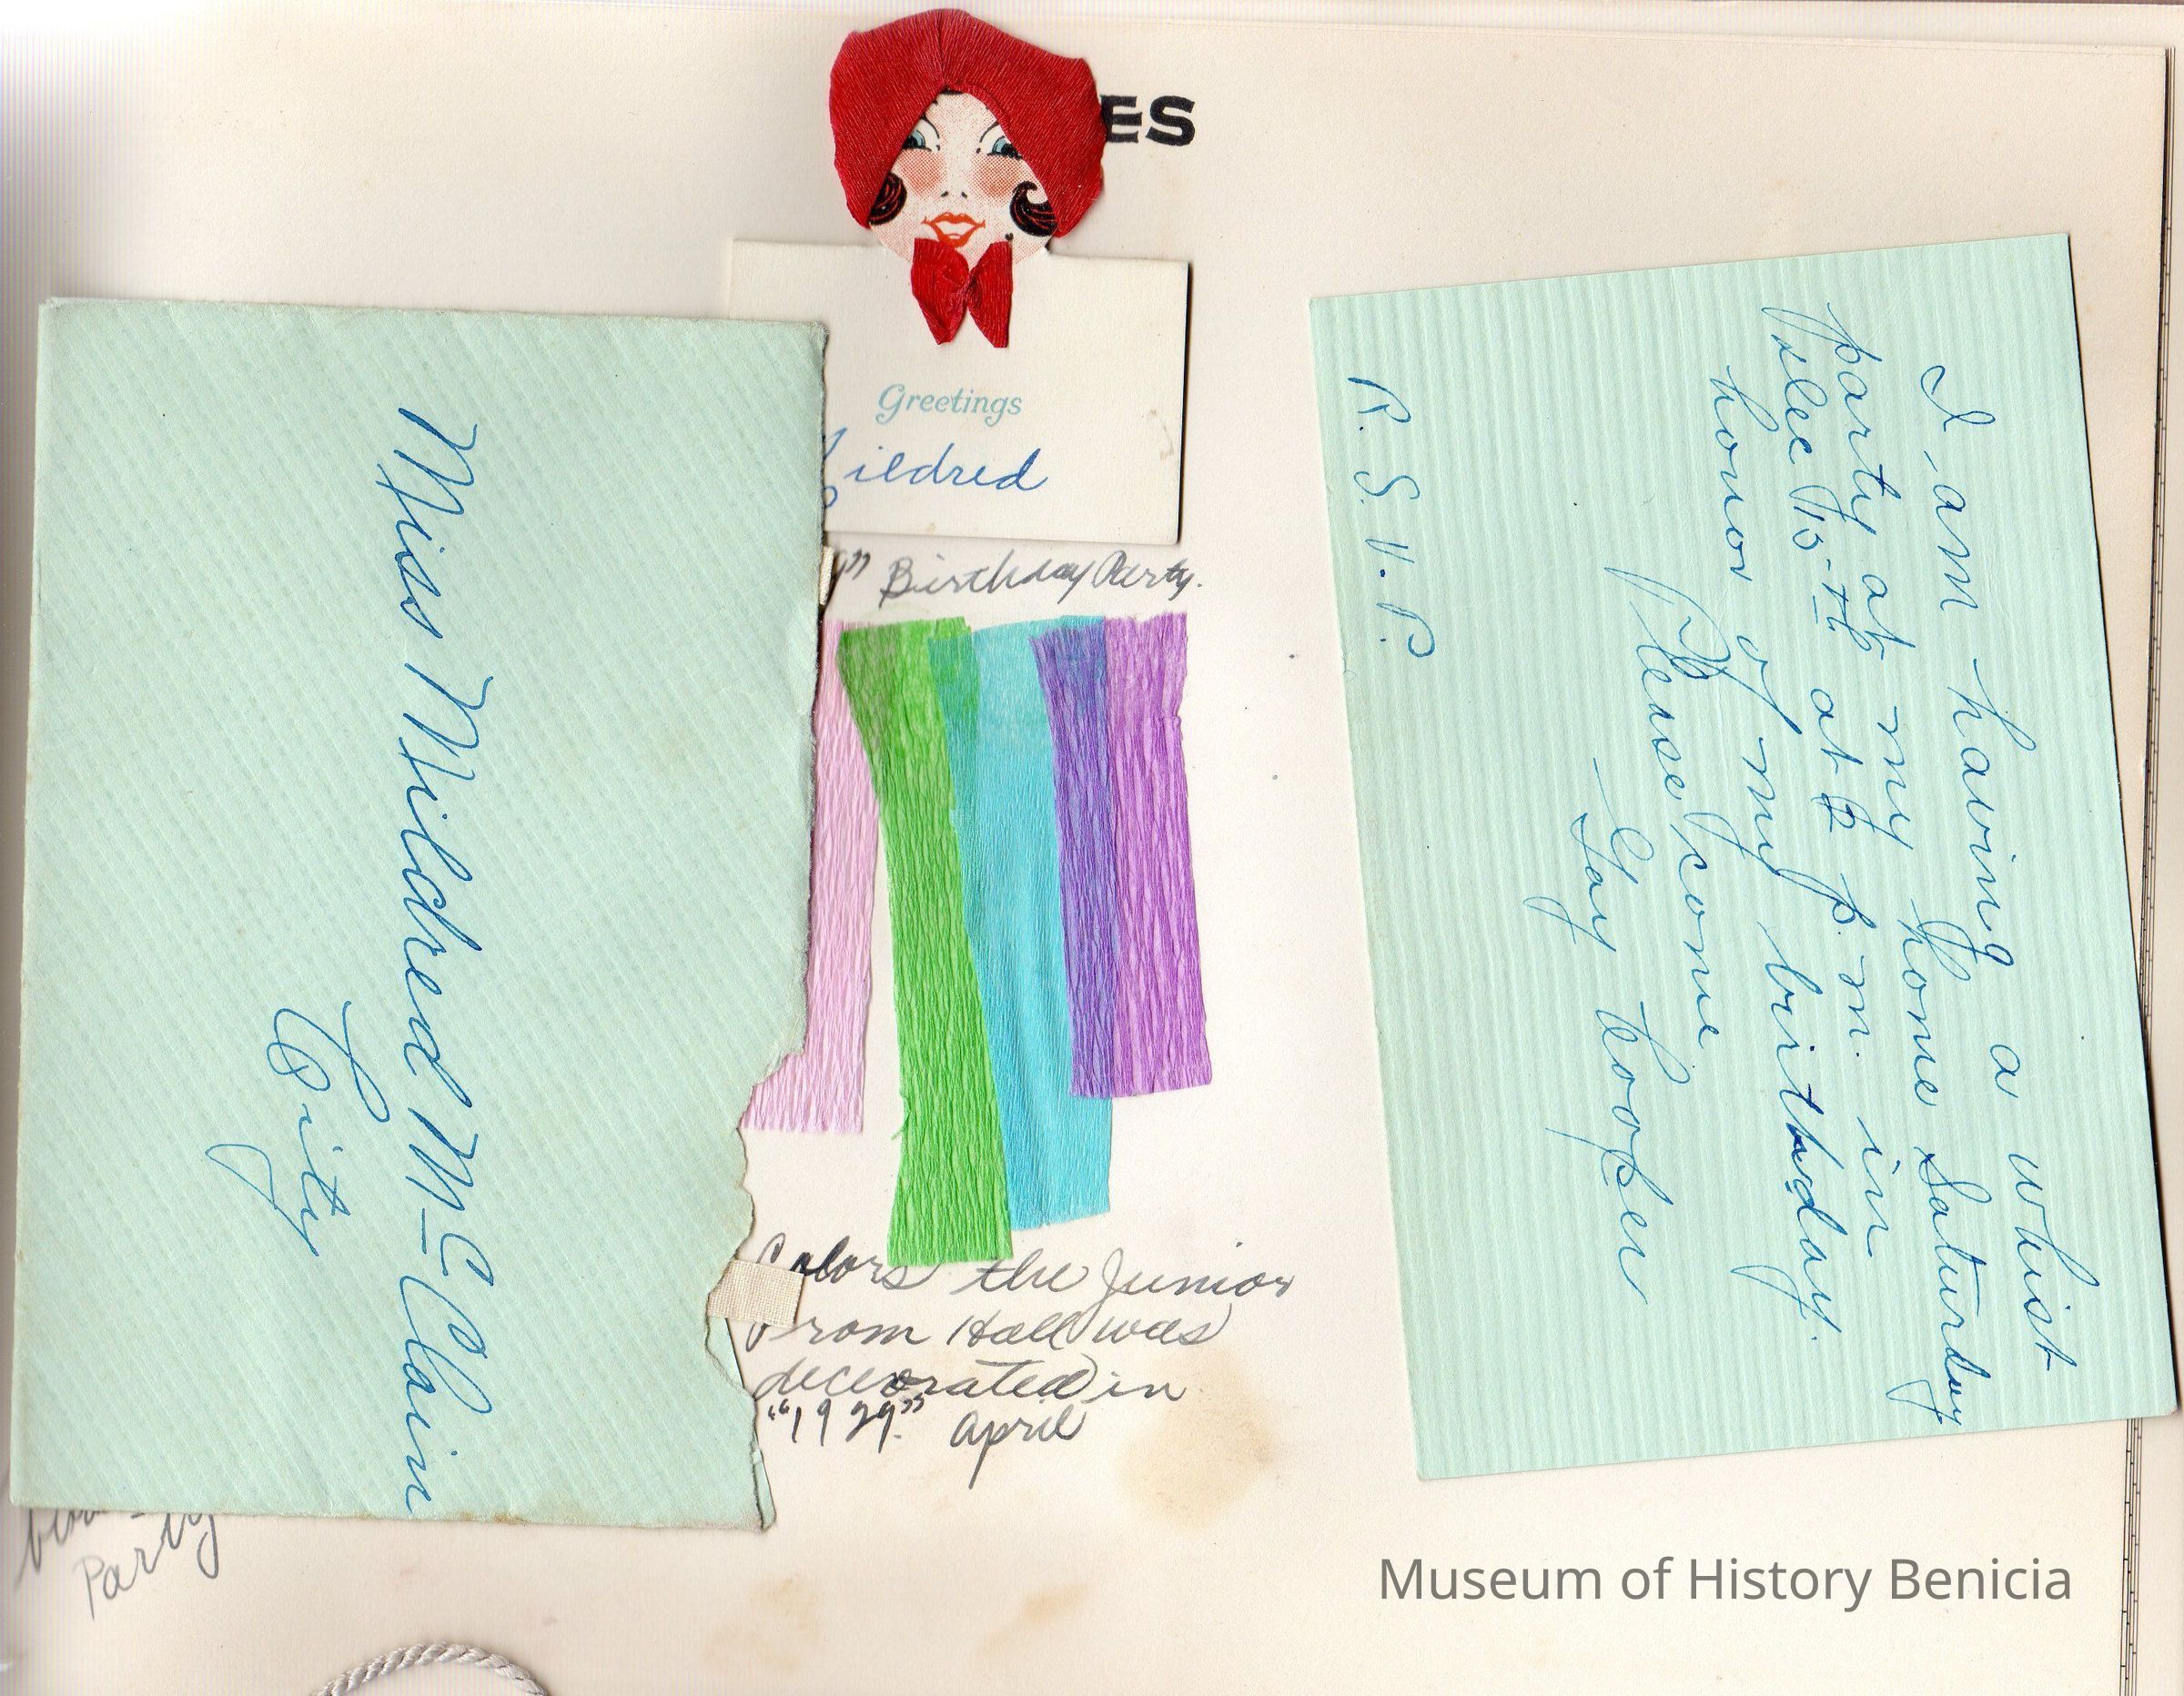 ES
Greetings
ildred
y" Birthday Party.
Miss Mildred McClain
City
Colors the Junior
Prom Hall was
decorated in
"1929." April
I am having a whist
party at my home Saturday
Dec 15-th at 2 p. m. in
honor of my birthday.
Please come
Gay Cooper
R. S. V. P.
Party
Museum of History Benicia